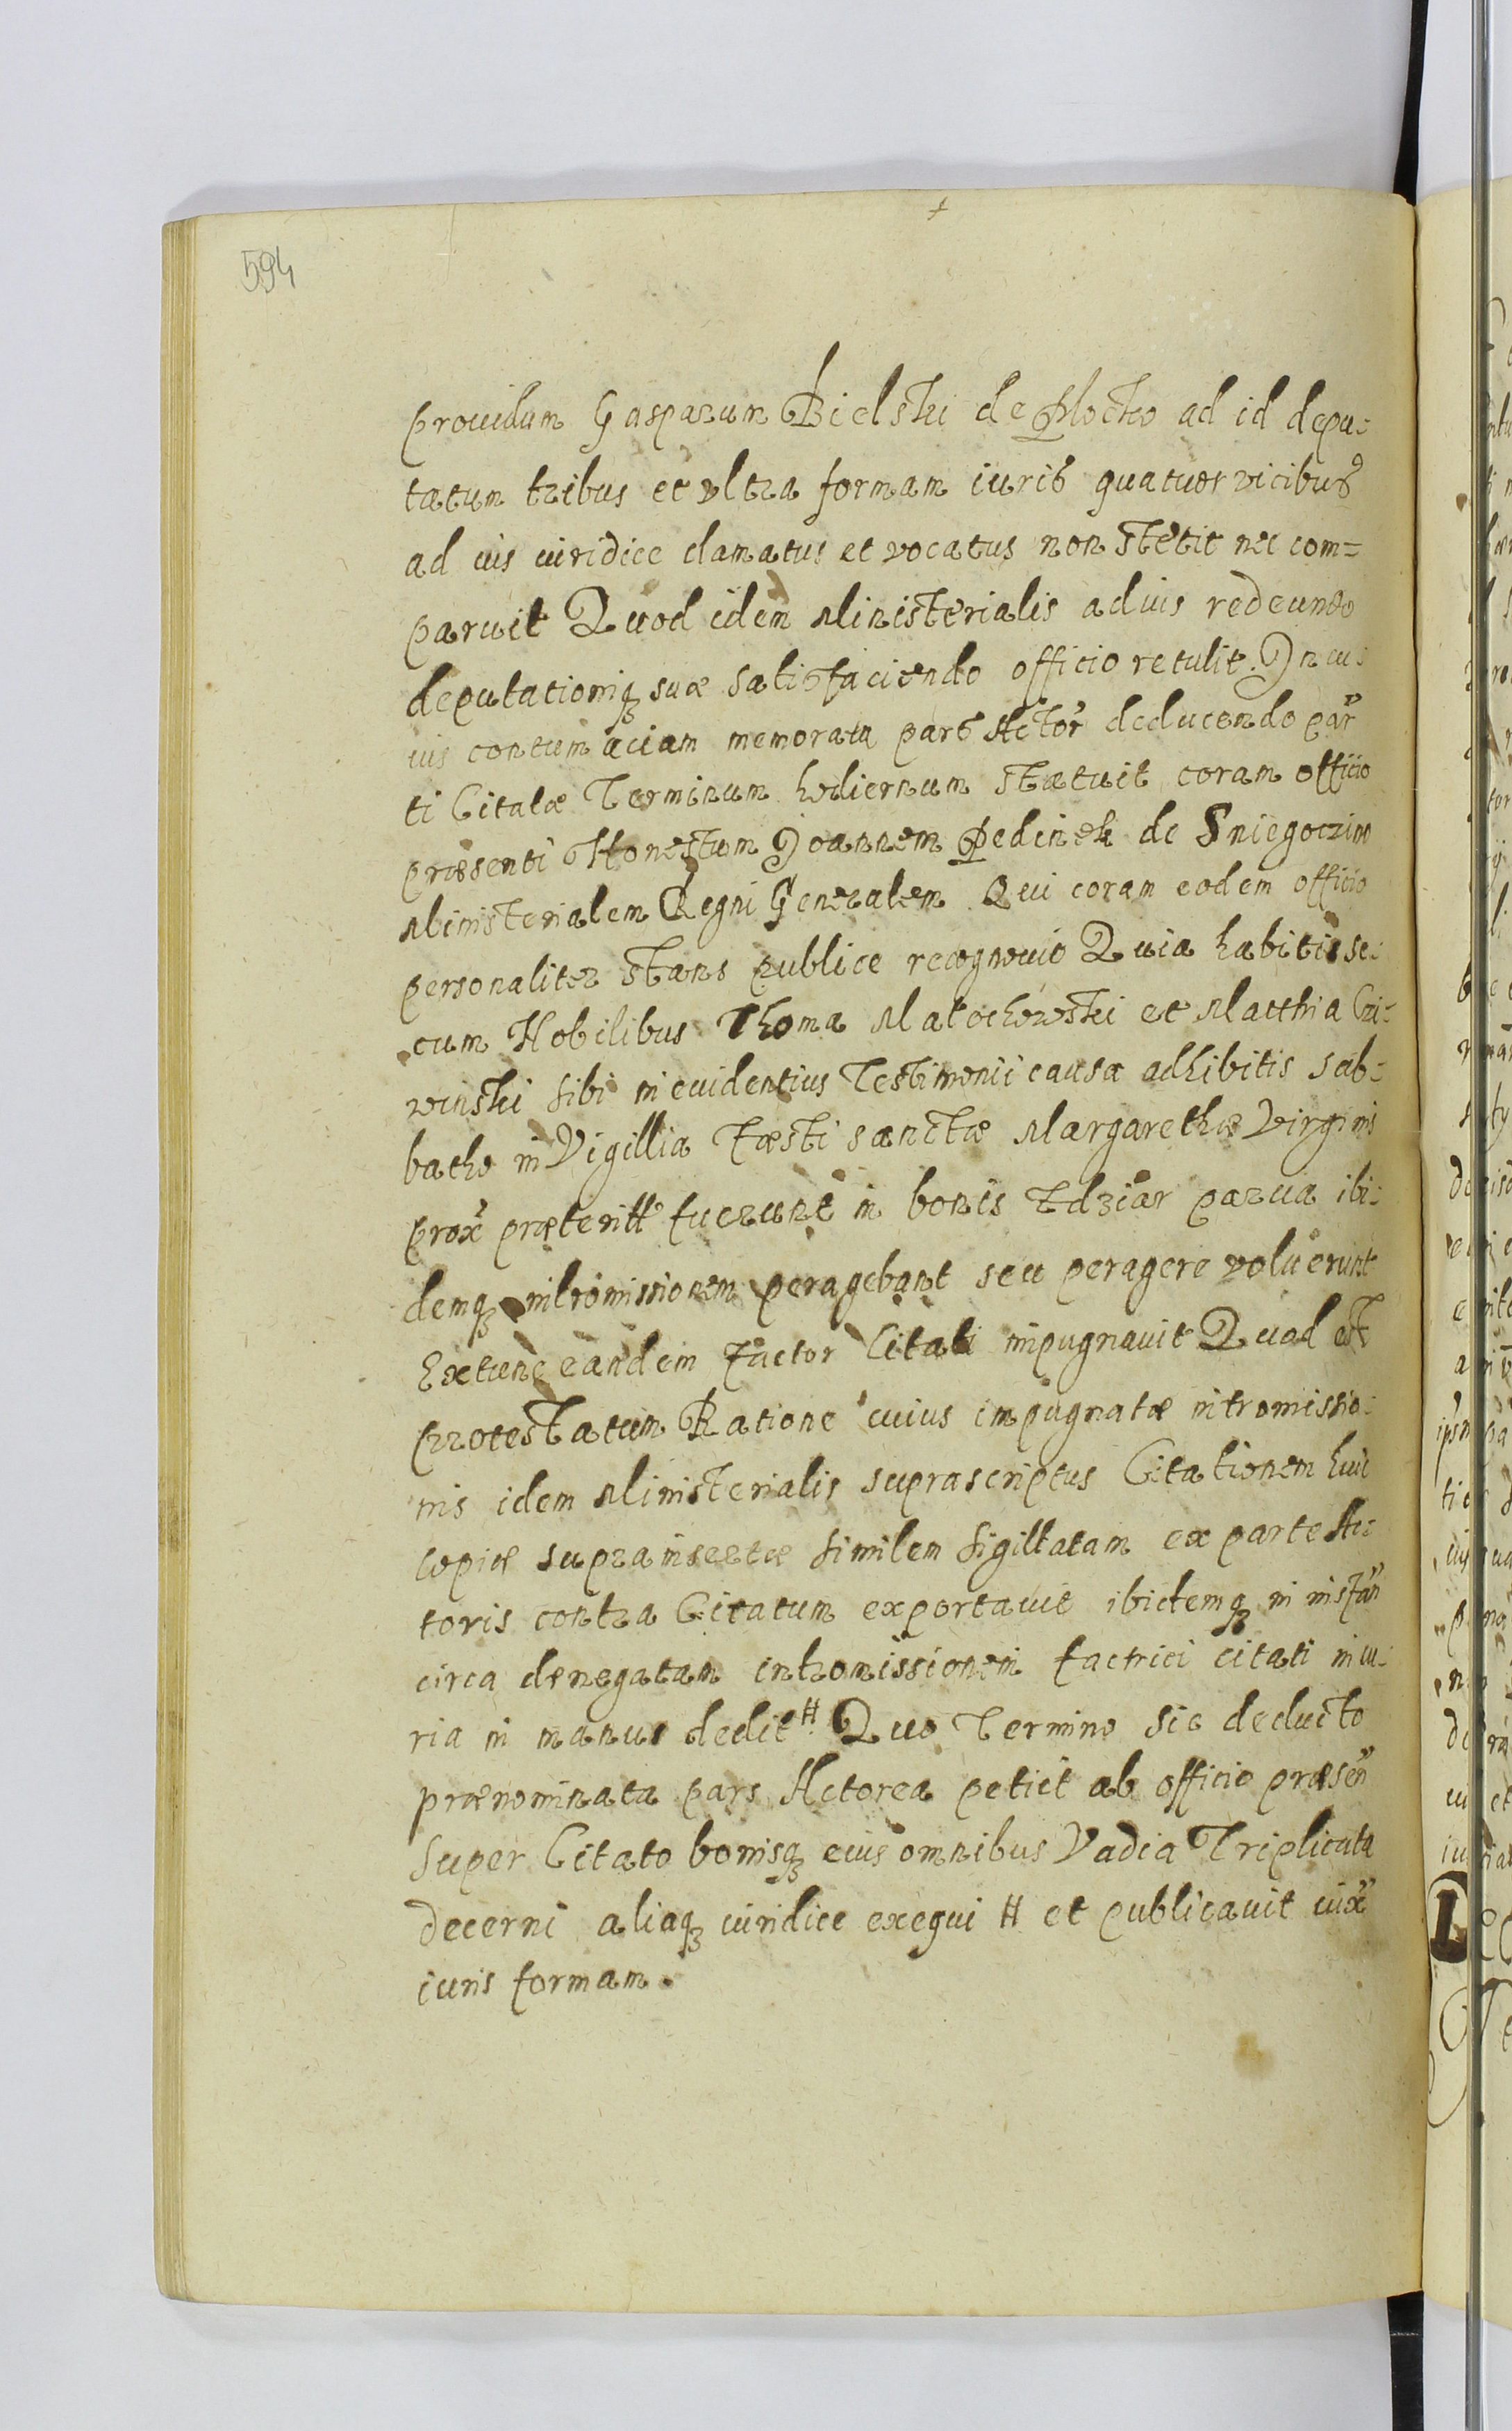 594
prouidum Gasparum Bielski de Plocko ad id depu-
tatum tribus et vltra formam iuris quatuor vicibus
ad ius iuridice clamatus et vocatus non stetit nec com=
paruit Quod idem Ministerialis ad ius redeundo
deputationiq suæ satisfaciendo officio retulit. In cu-
ius contumaciam memorata pars Actor deducendo par
ti Citatæ Terminum hodiernum statuit coram officio
præsenti Honestum Joannem Pedinek de Sniegoczino
Ministerialem Regni Generalem Qui coram eodem officio
personaliter stans publice recognouit Quia habitis se-
cum Nobilibus Thoma Malochowski et Matthia Czi-
winski sibi in euidentius Testimonii causa adhibitis Sab-
batho in Vigillia Fæsti sanctæ Margarethæ Virginis
prox præterit fuerunt in bonis Zdziar parua ibi-
demq intromissionem peragebant seu peragere voluerunt
Extunc eandem Factor Citati impugnauit Quod est
Protestatum Ratione cuius impugnatæ intromissio-
nis idem Ministerialis suprascriptus Citationem huic
copiæ suprainsertæ similem sigillatam ex parte Ac-
toris contra Citatum exportauit ibidemq in instan
circa denegatam intromissionem factrici citati in cu-
ria in manus dedit H Quo Termino sic deducto
prænominata pars Actorea petiit ab officio præsen
super Citato bonisq eius omnibus Vadia Triplicata
decerni aliaq iuridice exequi H et publicauit iux
iuris formam.